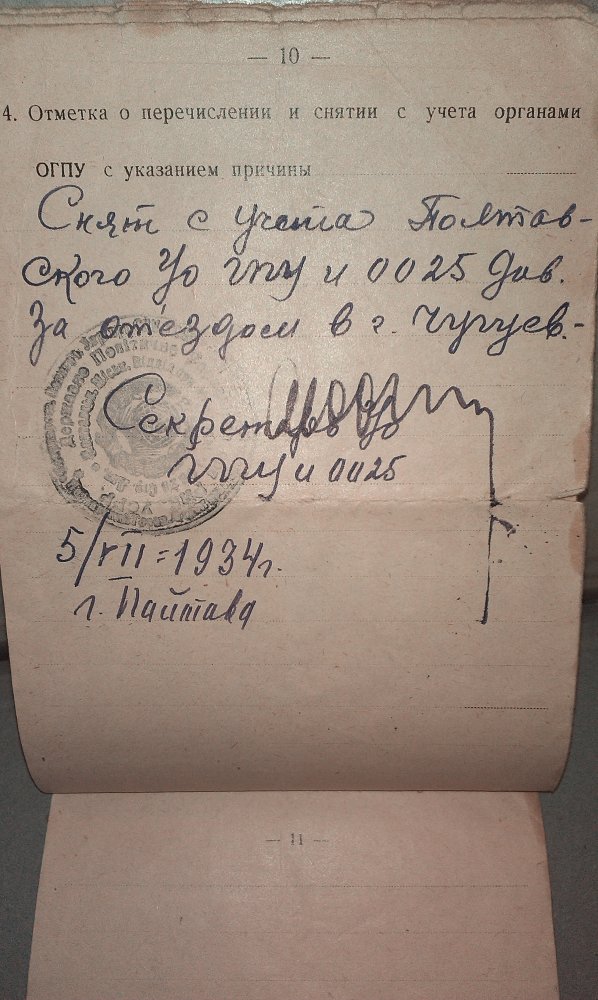 — 10 —
4. Отметка о перечислении и снятии с учета органами
ОГПУ с указанием причины
Снят с учета Полтав-
ского Уо ГПУ и 0025 Див.
За от'ездом в г. Чугуев.-
Секретарь Уо
ГПУ и 0025
5/VII=1934г.
г. Полтава
— 11 —